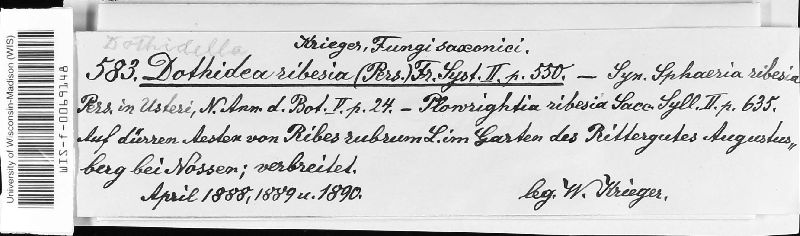 University of Wisconsin-Madison (WIS)
WIS-f-0069148
Dothidella
Krieger, Fungi saxonici.
583. Dothidea ribesia (Pers.) Fr. Syst. II. p. 550. — Syn. Sphaeria ribesia
Pers. in Usteri, N. Ann. d. Bot. II. p. 24. — Plowrightia ribesia Sacc. Syll. II. p. 635.
Auf dürren Aesten von Ribes rubrum L. im Garten des Rittergutes Augustus„
berg bei Nossen; verbreitet.
April 1888, 1889 u. 1890. leg. W. Krieger.